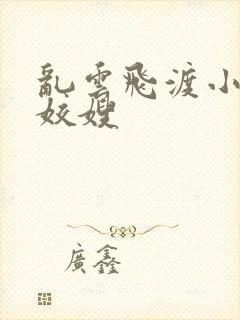 亂雲飛渡小
姣嫂
廣鑫